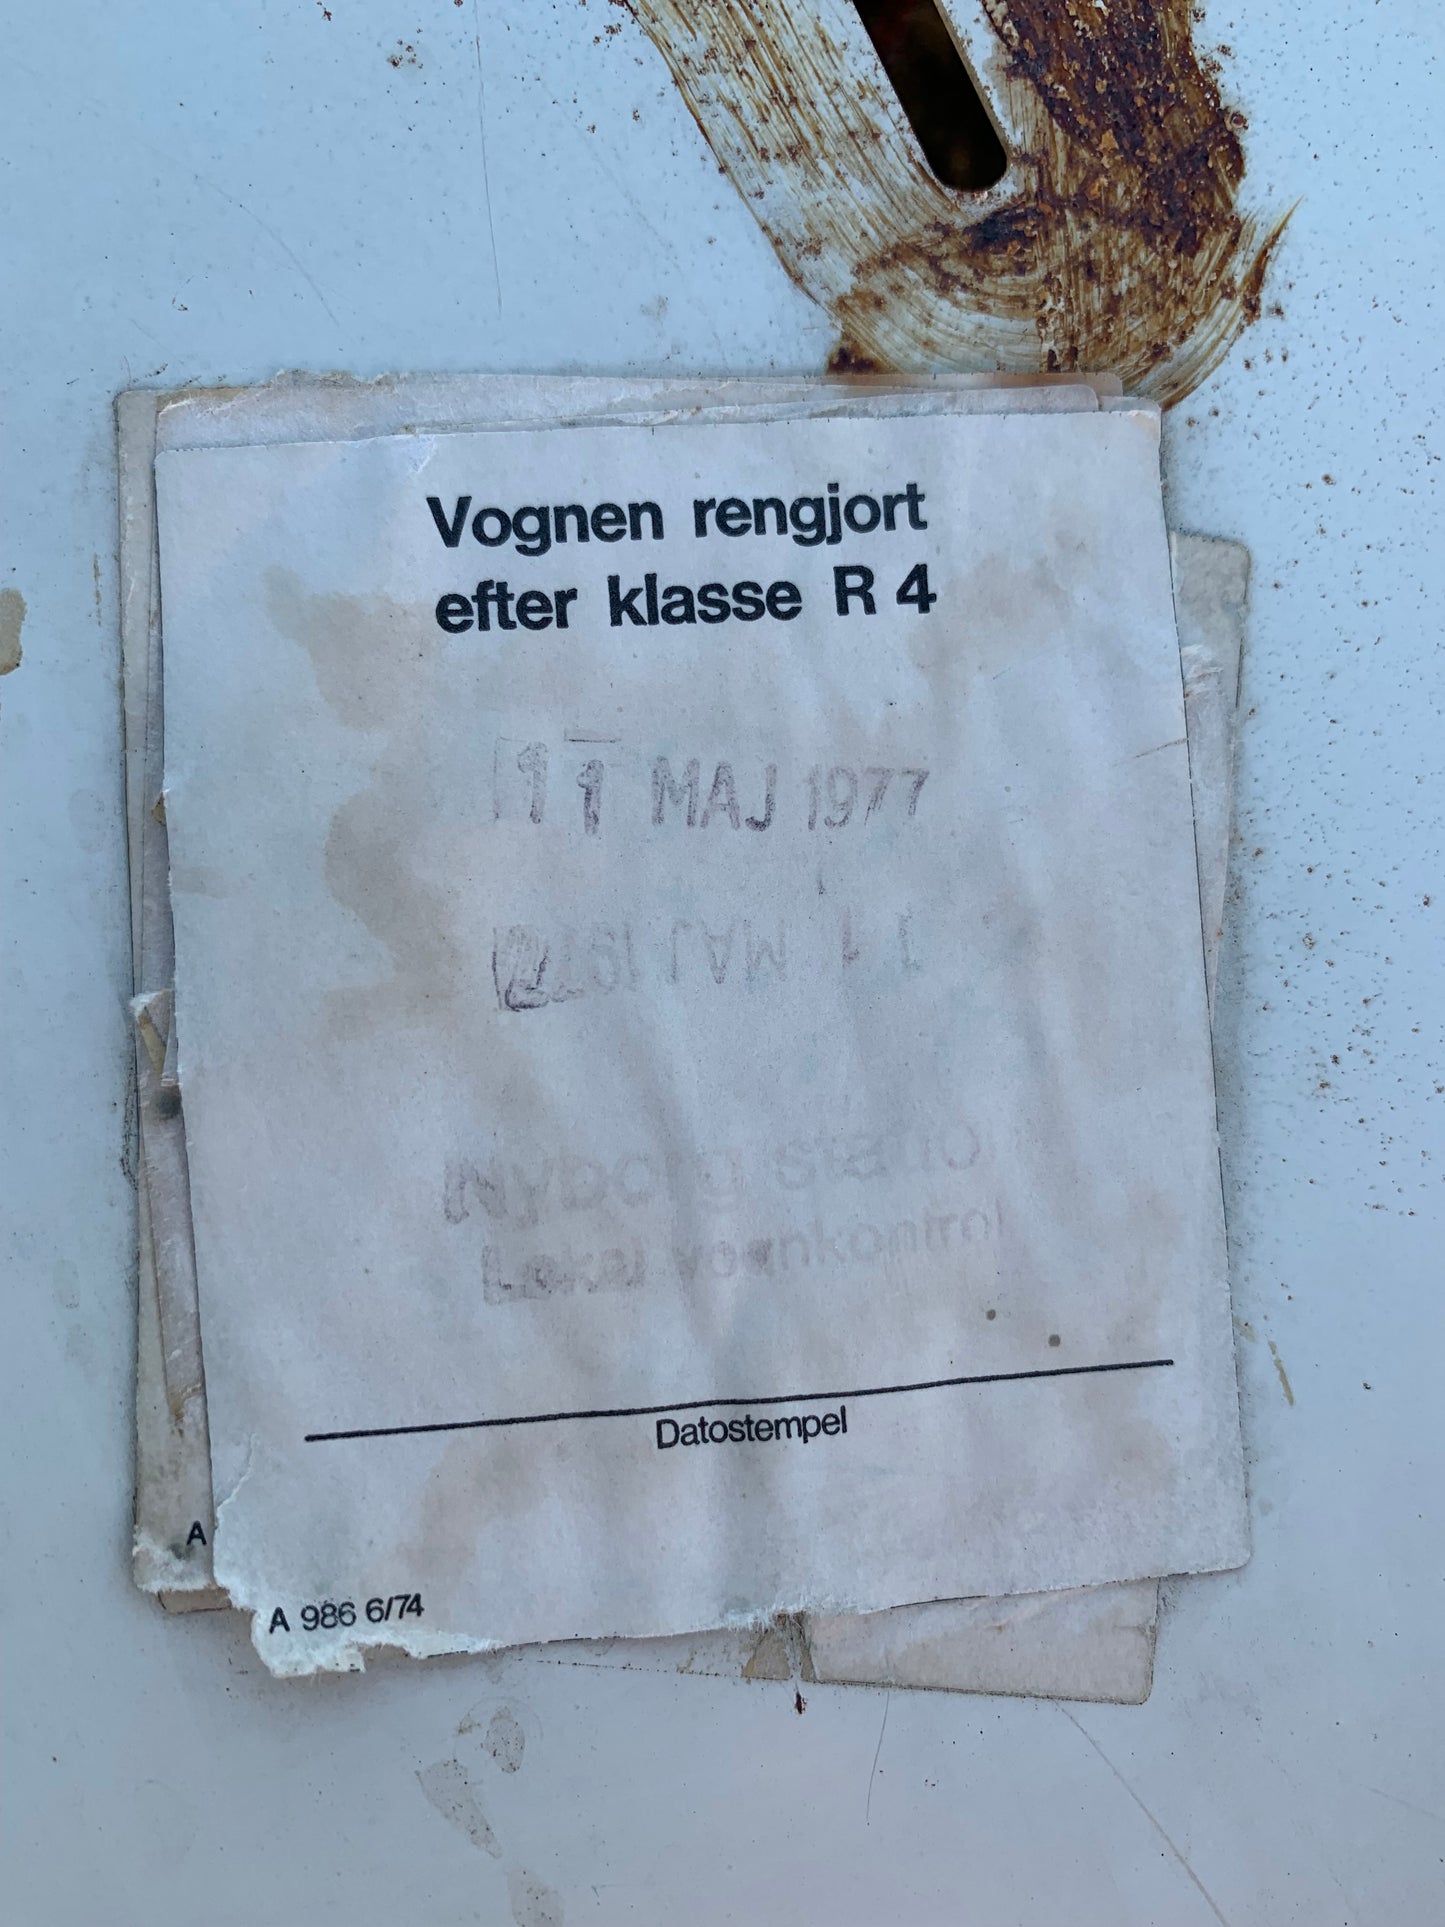 Vognen rengjort
efter klasse R 4
11 MAJ 1977
11 MAJ 1977
Nyborg Statio
Lokal vognkontrol
Datostempel
A
A 986 6/74